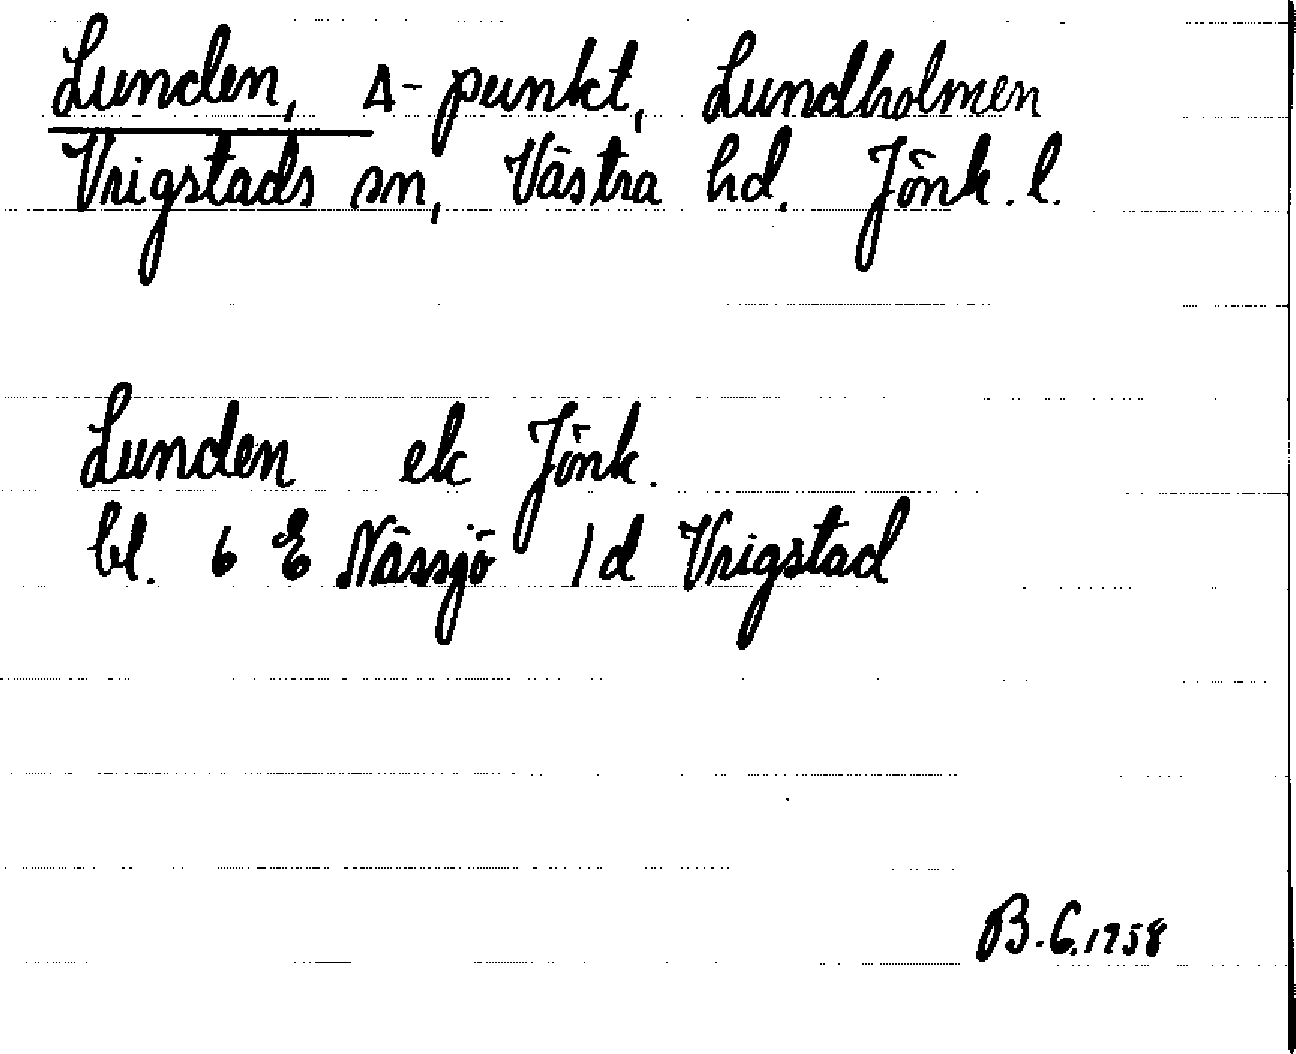 Lunden, Δ-punkt, Lundholmen
Vrigstads sn, Västra hd. Jönk. l.
Lunden ek Jönk.
bl. 6 E Nässjö 1d Vrigstad
B.G.1958